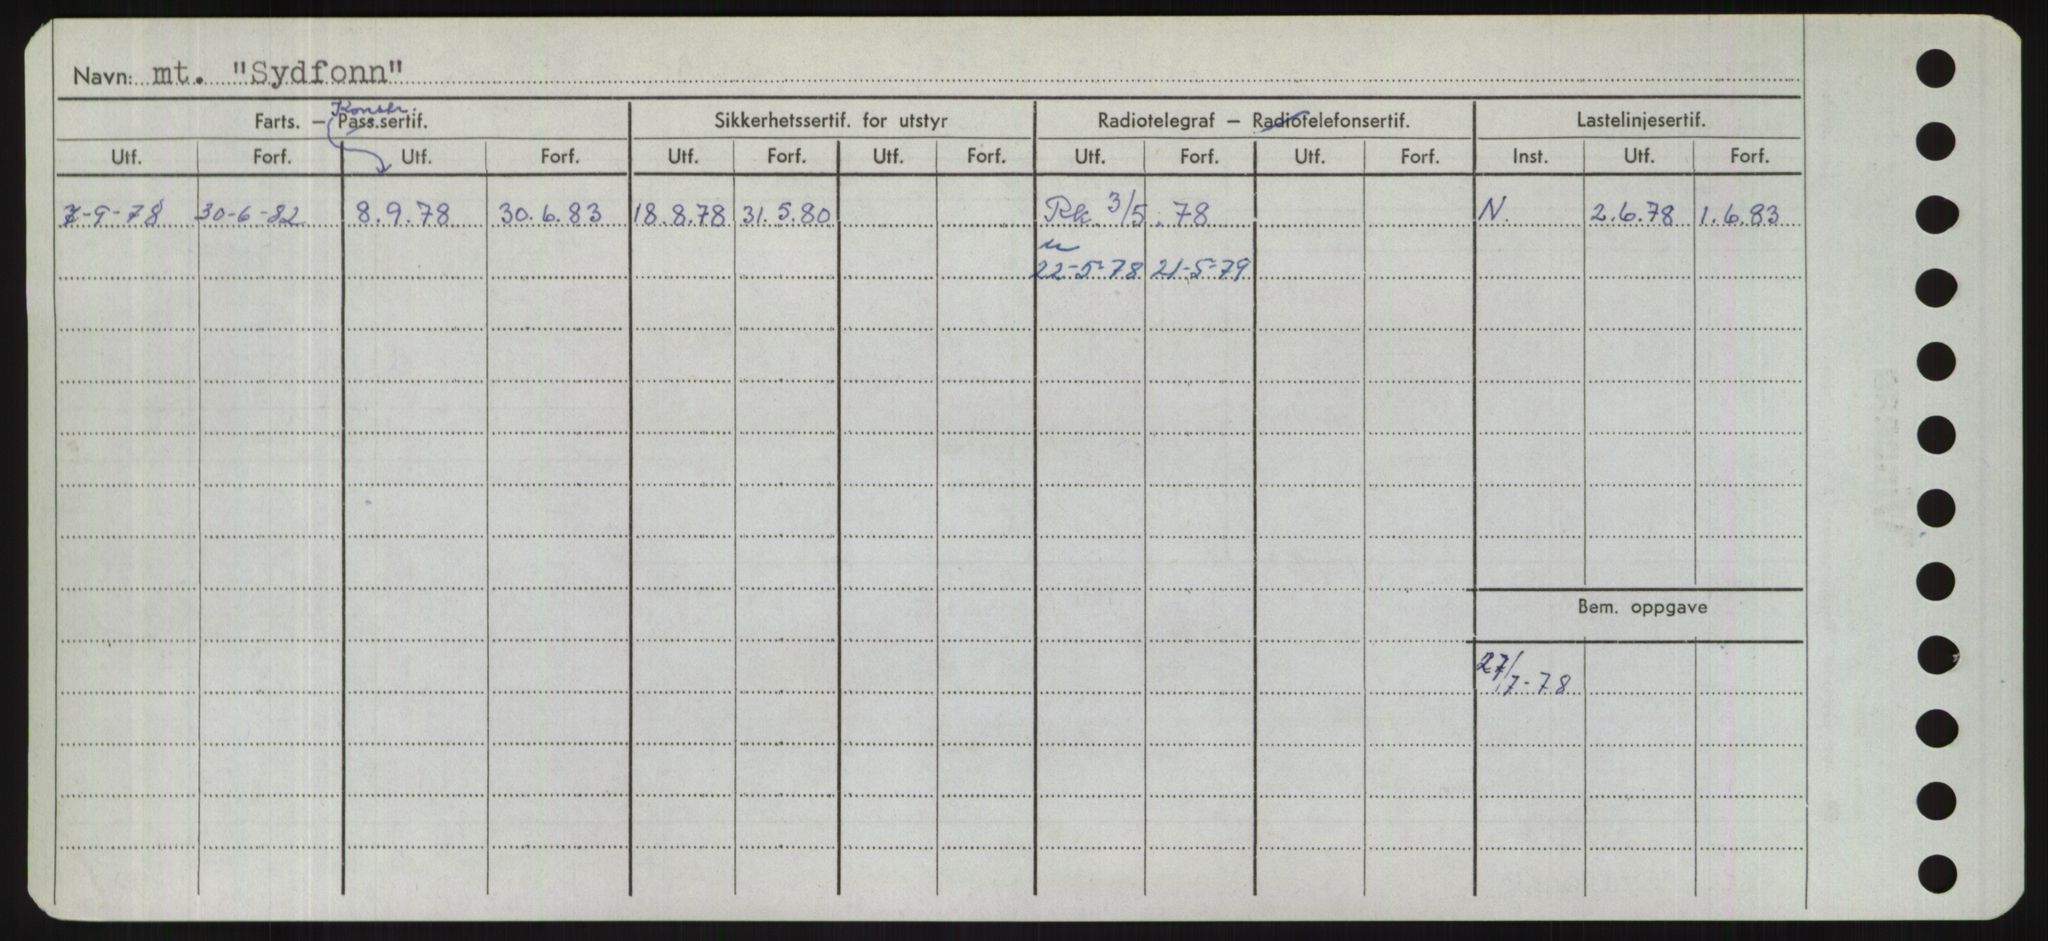 Navn: mt. "Sydfonn"
Konstr.
Farts. – Pass.sertif. Sikkerhetssertif. for utstyr Radiotelegraf – Radiotelefonsertif. Lastelinjesertif.
Utf. Forf. Utf. Forf. Utf. Forf. Utf. Forf. Utf. Forf. Utf. Forf. Inst. Utf. Forf.
7-9-78 30-6-82 8.9.78 30.6.83 18.8.78 31.5.80 Rk. 3/5.78 N. 2.6.78 1.6.83
22-5-78 21-5-79
Bem. oppgave
27/7-78